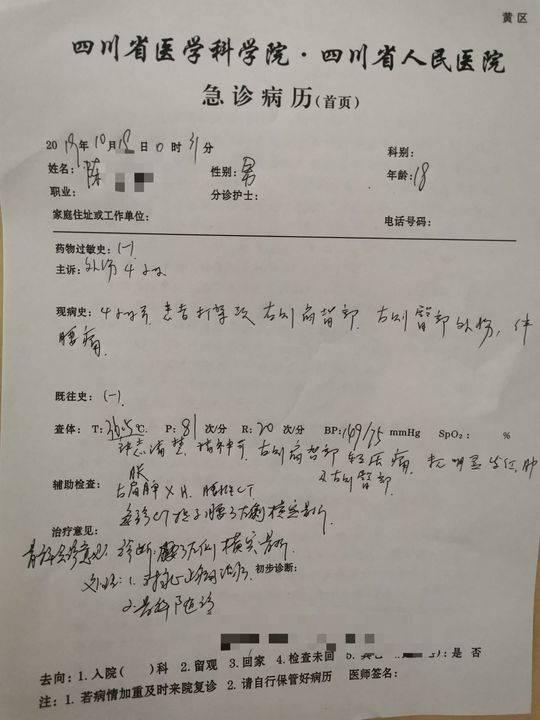 黄区
四川省医学科学院·四川省人民医院
急诊病历(首页)
2019年10月18日0时31分 科别:
姓名:陈 性别:男 年龄:18
职业: 分诊护士:
家庭住址或工作单位: 电话号码:
药物过敏史:(-)
主诉:外伤4小时
现病史:4小时前患者打架致右侧肩背部、右侧臀部外伤,伴
腰痛
既往史:(-).
查体: T:36.5℃. P:81次/分 R:20次/分 BP:149/75mmHg SpO₂: %
神志清楚 精神可 右侧肩背部 轻压痛 无明显 肿
胀 及右侧臀部
辅助检查:右肩胛X片 腰椎CT
急诊CT 腰 左侧横突骨折
治疗意见:
骨科会诊意见:诊断 腰 左侧横突骨折
处理:1. 对症止痛治疗 初步诊断:
2.骨科随诊
去向:1.入院( )科 2.留观 3.回家 4.检查未回 :是 否
注:1.若病情加重及时来院复诊 2.请自行保管好病历 医师签名: